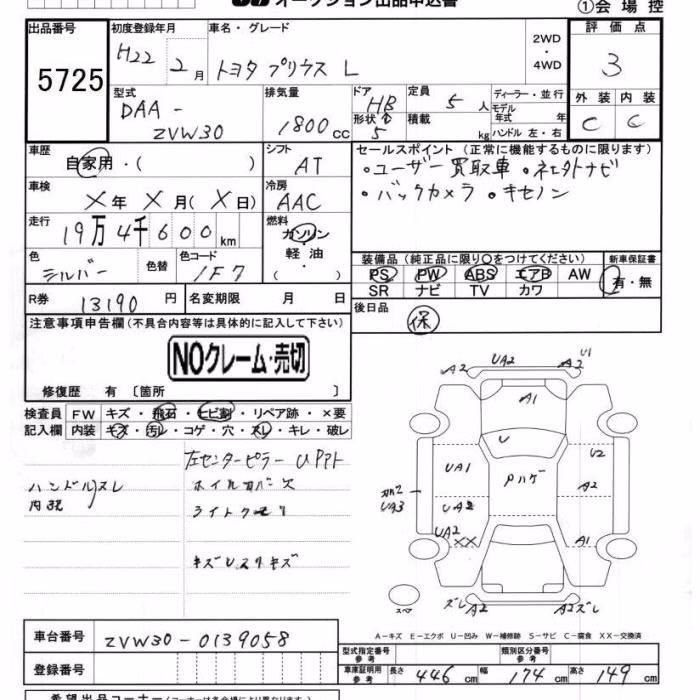 オークション出品申込書
①会場控
出品番号 初度登録年月 車名・グレード 評価点
5725 H22 2月 トヨタ プリウス L 2WD・4WD 3
型式 排気量 ドア 定員 ディーラー・並行 外装 内装
DAA- HB 5人 モデル年式 年 C C
ZVW30 1800cc 形状 5 積載 kg ハンドル 左・右
車歴 シフト セールスポイント(正常に機能するものに限ります)
自家用・( ) AT ・ユーザー買取車
車検 冷房 ・バックカメラ ・キセノン
×年×月(×日) AAC
走行 燃料
19万4千600km ガソリン・軽油・( )
色 色替 色コード 装備品(純正品に限り○をつけてください) 新車保証書
シルバー 1F7 PS PW ABS エアB AW 有・無
SR ナビ TV カワ
R券 13190円 名変期限 月 日 後日品 保
注意事項申告欄(不具合内容等は具体的に記入して下さい)
NOクレーム・売切
修復歴 有 〔箇所 〕
検査員 FW キズ・飛石・ヒビ割・リペア跡・×要
記入欄 内装 キズ・汚レ・コゲ・穴・スレ・キレ・破レ
左センターピラー
ハンドルスレ
A2 UA2 A2 U1
A1
U
UA1 Pハゲ U2
A2
UA3 UA2
UA2 XX A1
ズレ A2 A2ズレ
A-キズ E-エクボ U-凹み W-補修跡 S-サビ C-腐食 XX-交換済
車台番号 ZVW30-0139058
型式指定番号 参考 類別区分番号 参考
登録番号 車庫証明用 参考 長さ 446cm 幅 174cm 高さ 149cm
希望出品コーナー